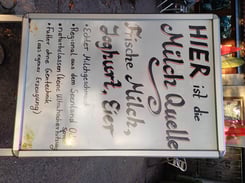 HIER ist die
Milch Quelle
Frische Milch,
Joghurt, Eier
• Echter Milchgeschmack
• Regional aus dem Seenland O
• naturbelassen (keine Ultrahocherhitzung)
• Futter ohne Gentechnik
(aus eigener Erzeugung)